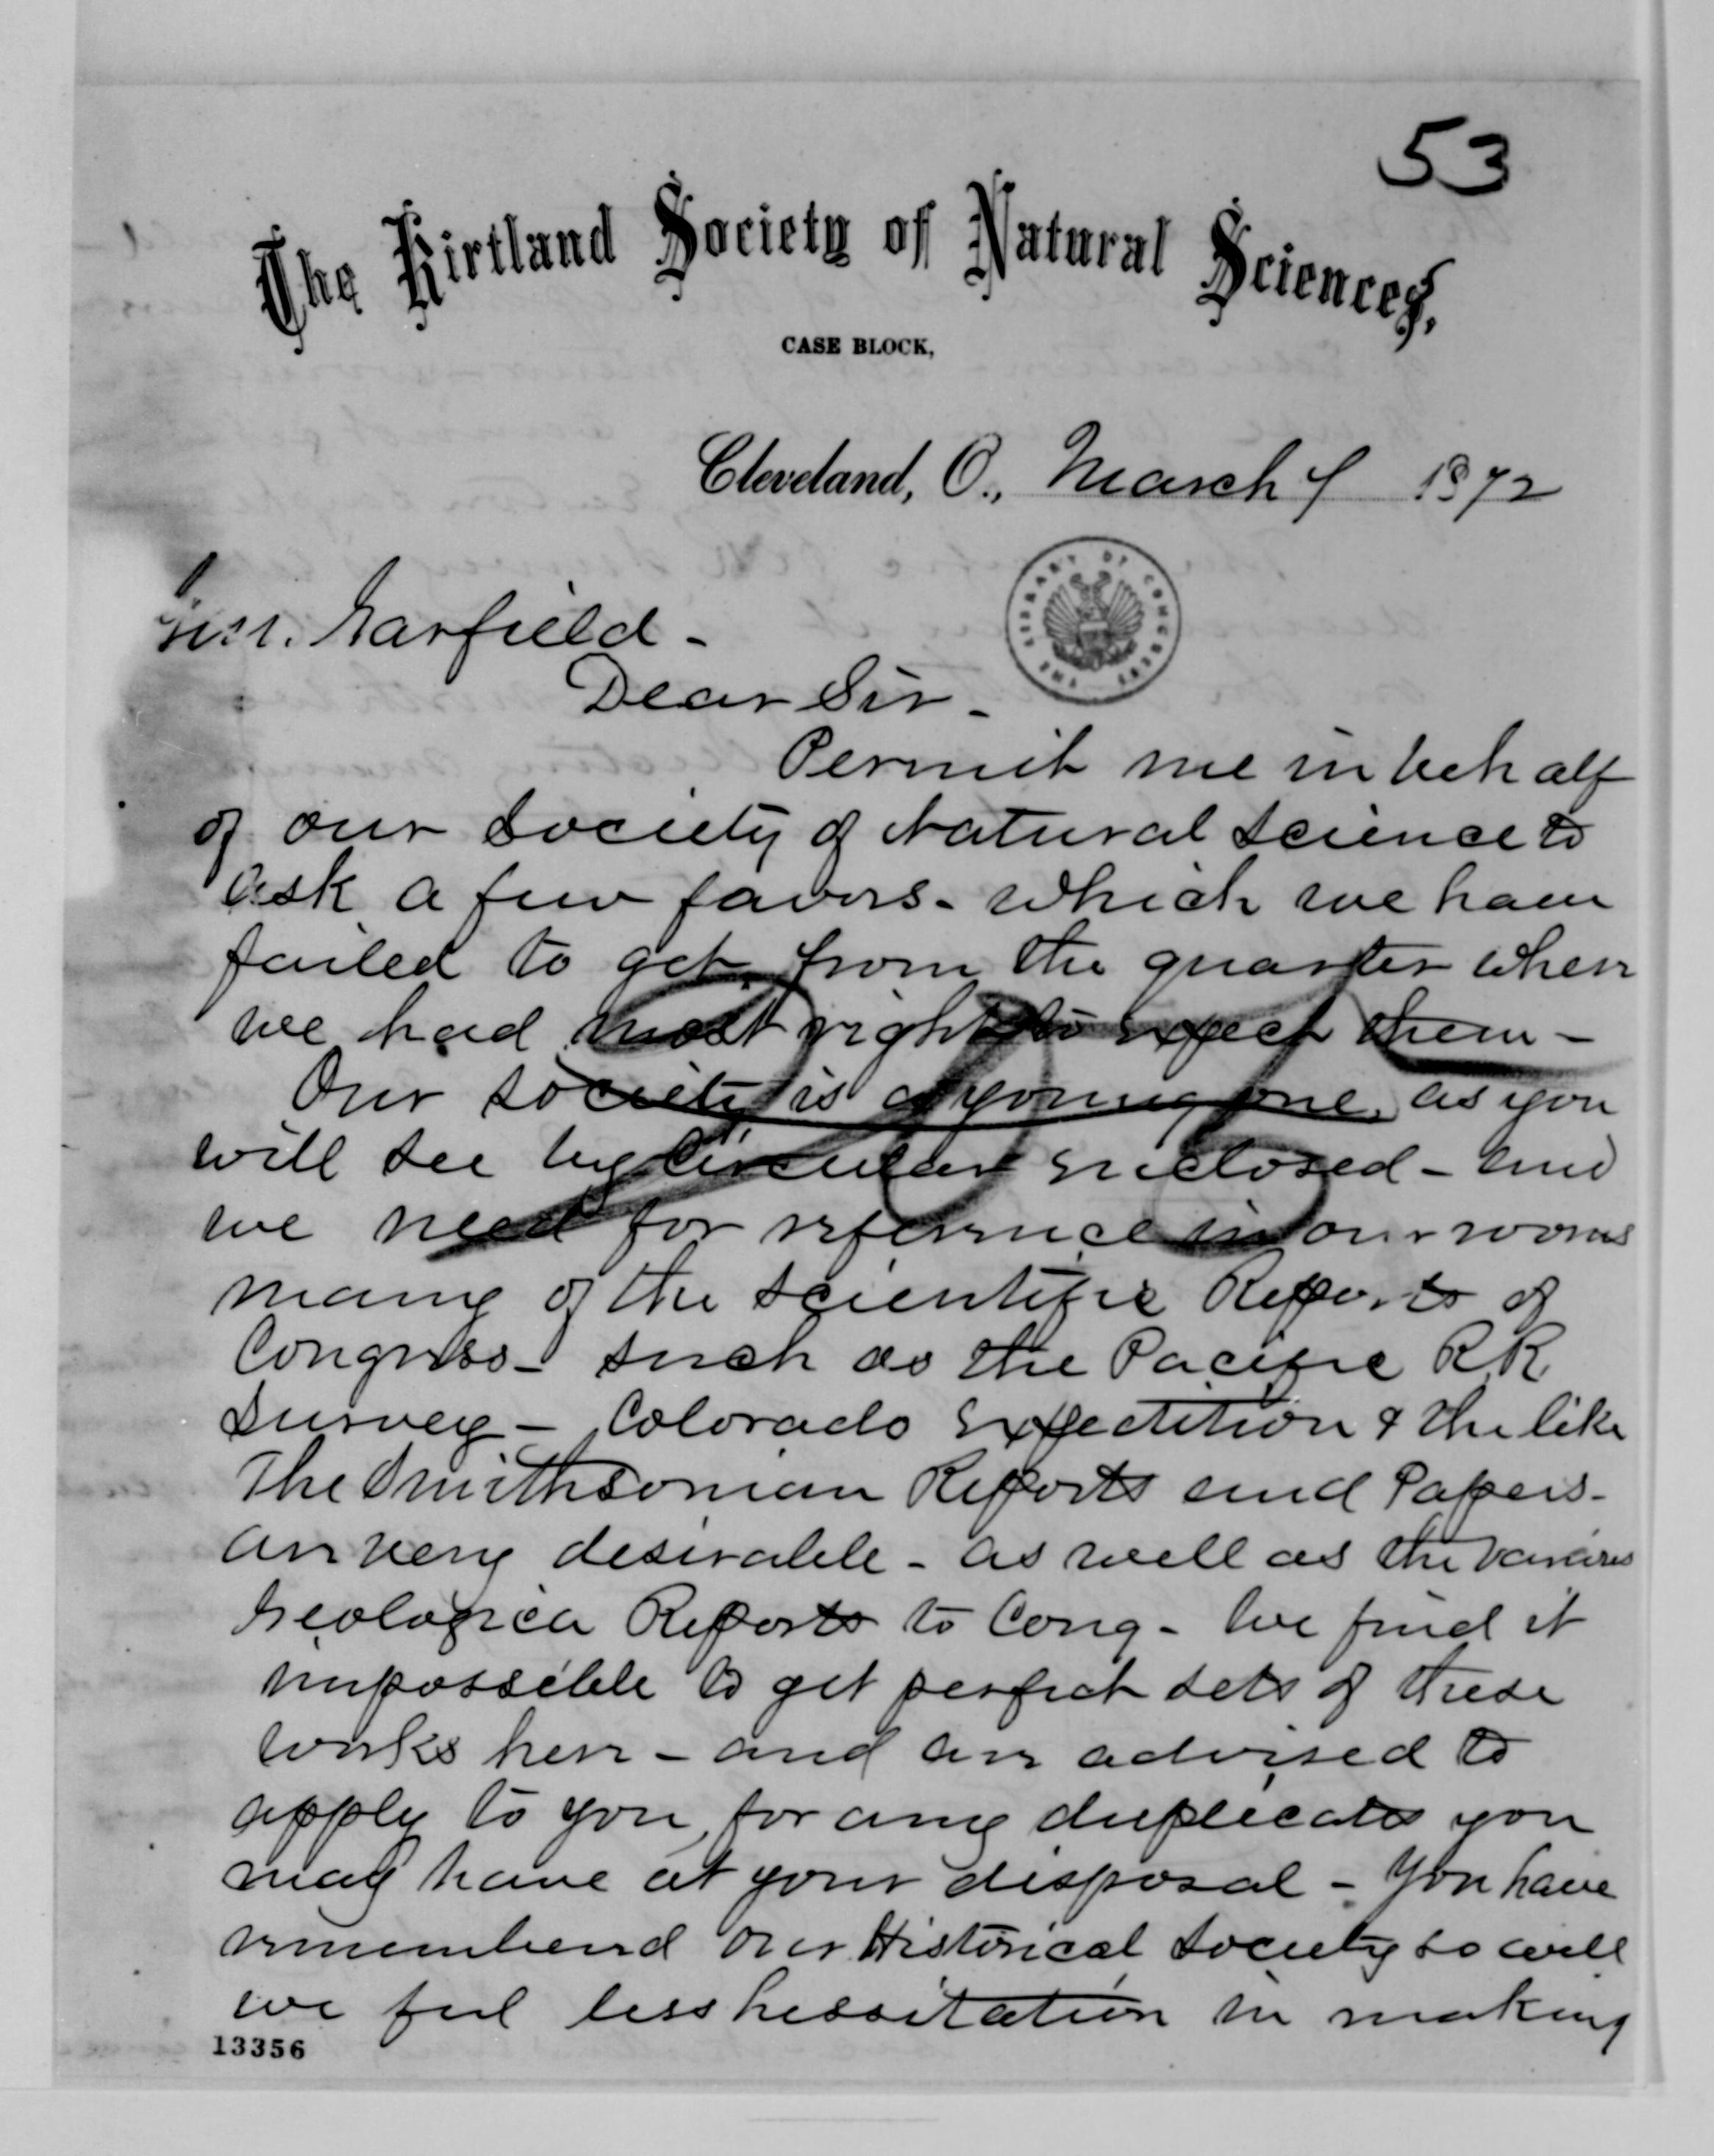 53
The Kirtland Society of Natural Sciences,
CASE BLOCK,
Cleveland, O., March 9 1872
THE LIBRARY OF CONGRESS
Genl. Garfield -
Dear Sir -
Permit me in behalf
of our Society of Natural Science to
ask a few favors - which we have
failed to get from the quarter where
we had most right to expect them -
Our society is a young one, as you
will see by circular enclosed - and
we need for reference in our rooms
many of the Scientific Reports of
Congress - such as the Pacific RR
Survey - Colorado Expedition & the like
The Smithsonian Reports and Papers -
are very desirable - as well as the various
Geological Reports to Cong - We find it
impossible to get perfect sets of these
works here - and are advised to
apply to you for any duplicates you
may have at your disposal - You have
remembered our Historical Society so well
we feel less hessitation in making
13356